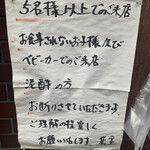 5名様以上でのご来店
お食事されないお子様及び
ベビーカーでのご来店
泥酔の方
お断りさせていただきます。
ご理解の程宜しく
お願い致します 店主